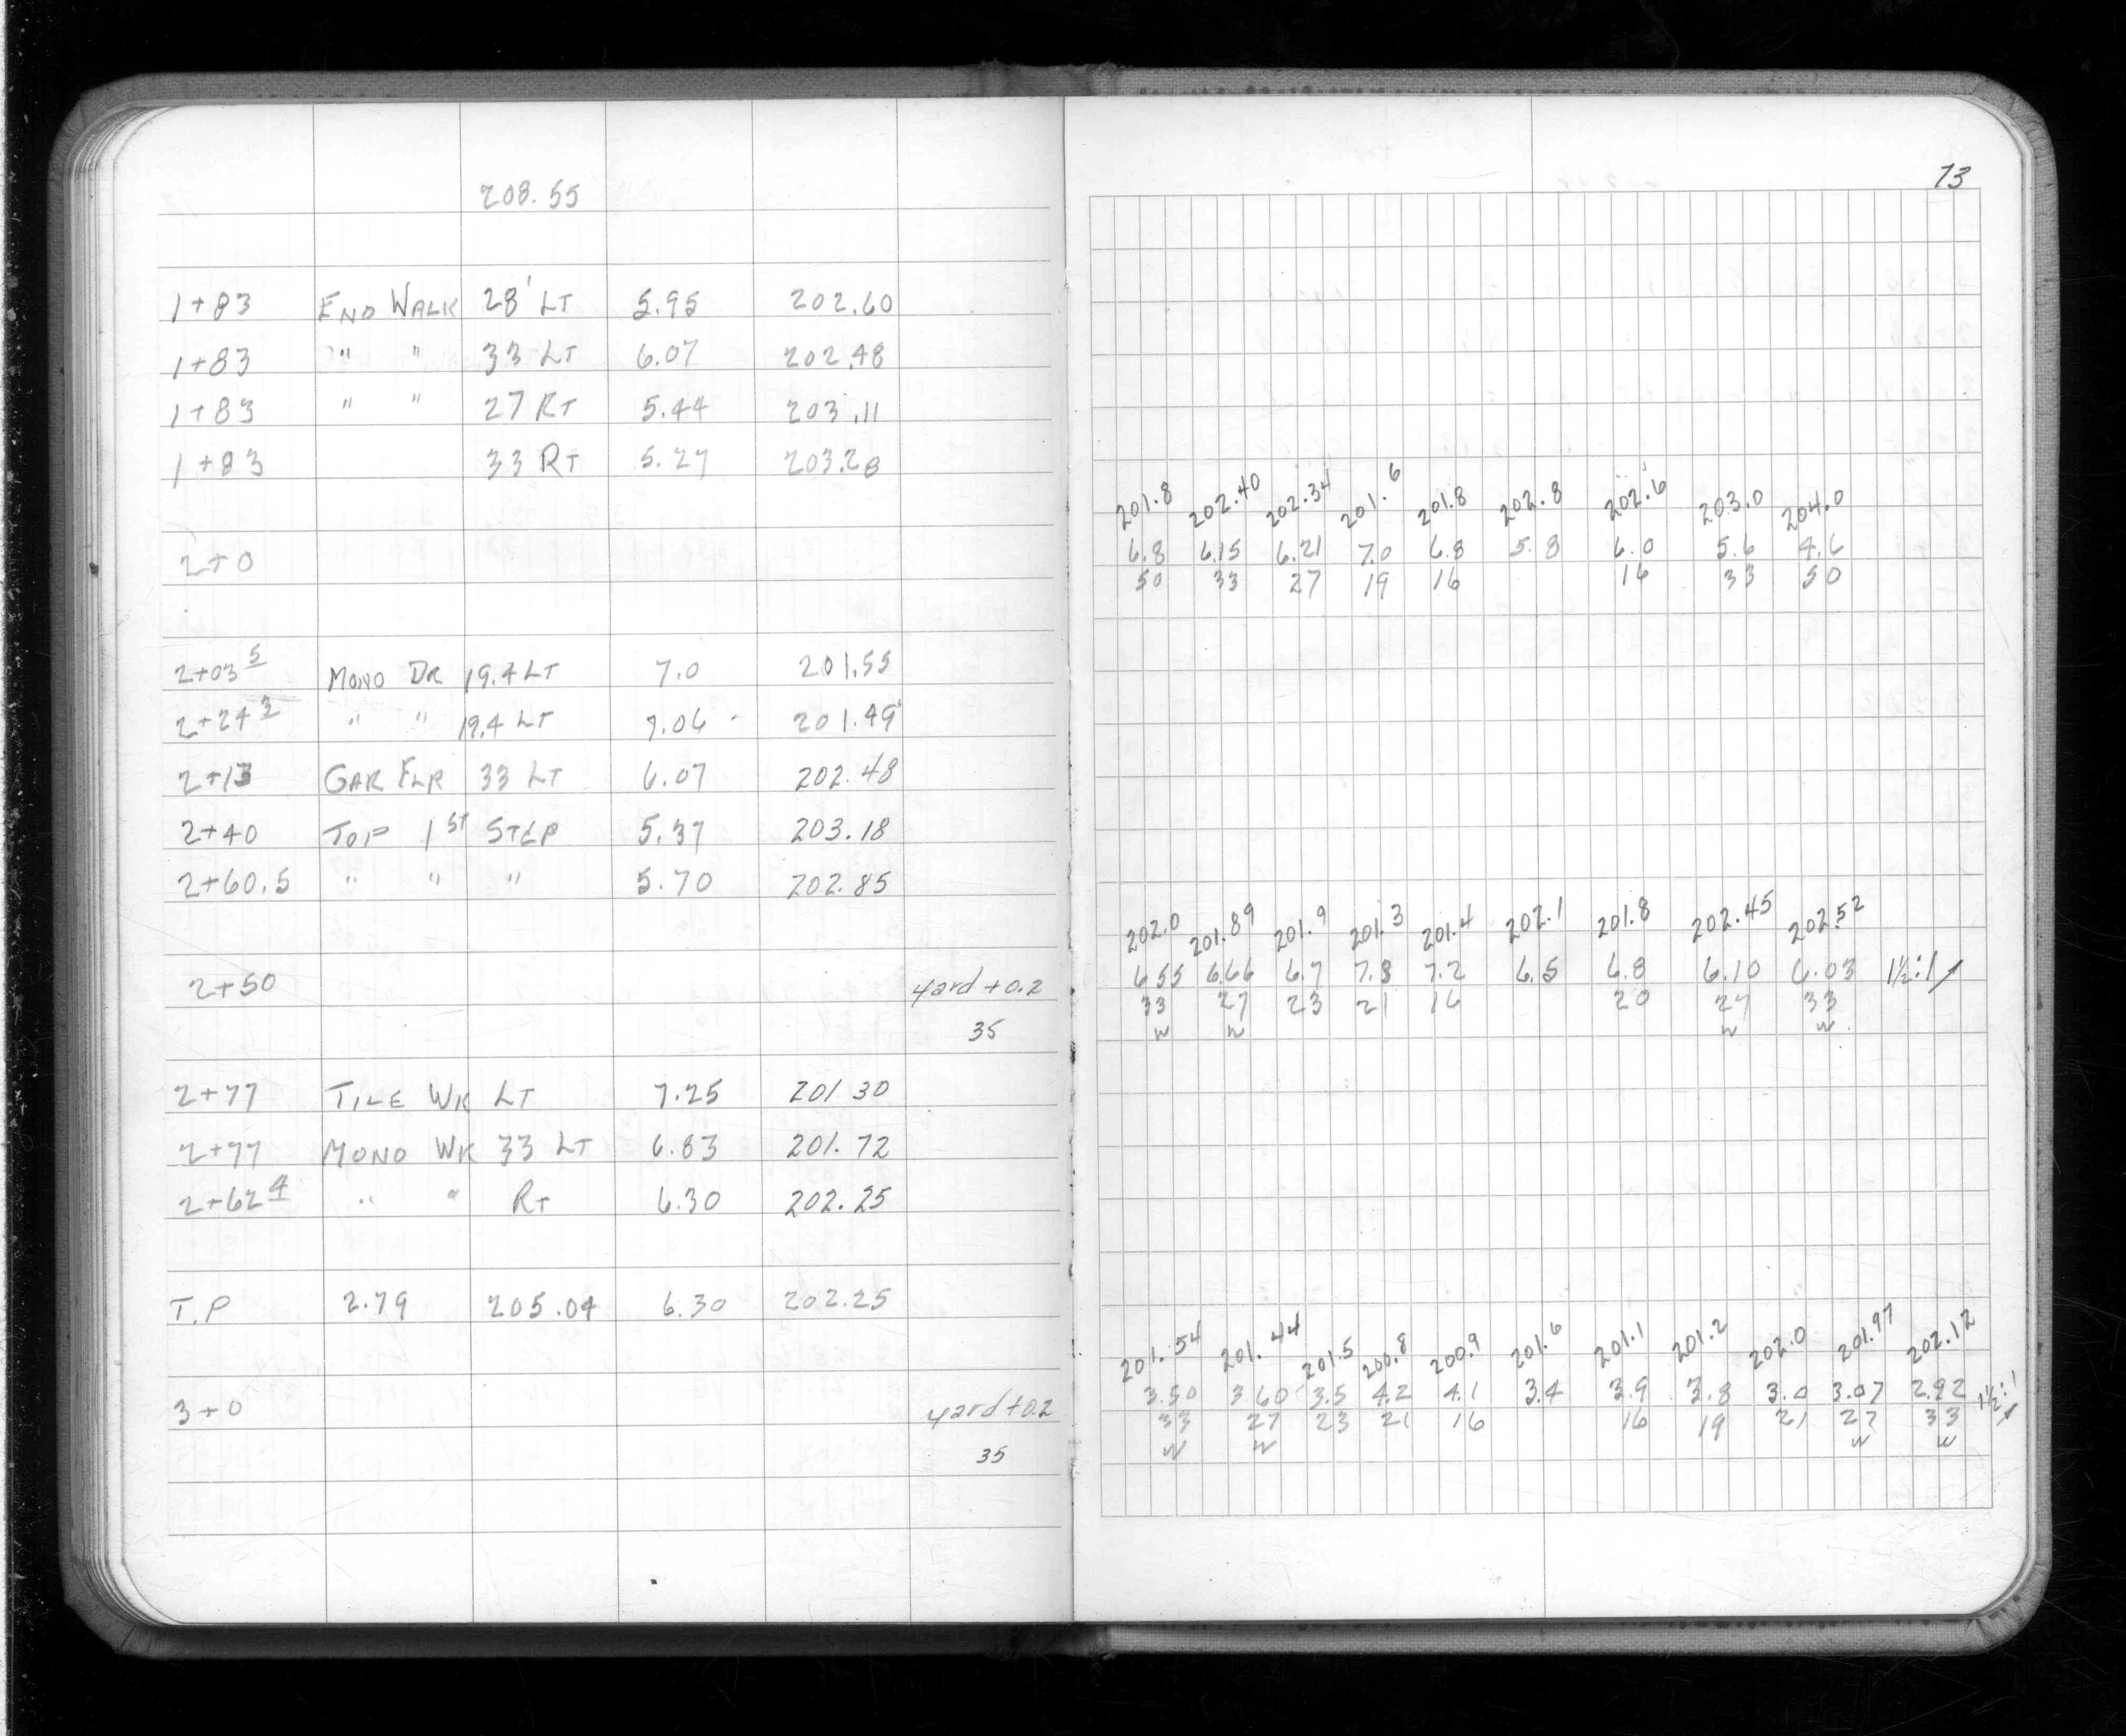 73
208.55
1+83 END WALK 28' LT 5.95 202.60
1+83 " " 33 LT 6.07 202.48
1+83 " " 27 RT 5.44 203.11
1+83 33 RT 5.27 203.28
201.8 202.40 202.34 201.6 201.8 202.8 202.6 203.0 204.0
2+0 6.8 6.15 6.21 7.0 6.8 5.8 6.0 5.6 4.6
50 33 27 19 16 16 33 50
2+03 5 MONO DR 19.4 LT 7.0 201.55
2+24 3 " " 19.4 LT 7.06 201.49
2+13 GAR FLR 33 LT 6.07 202.48
2+40 TOP 1ST STEP 5.37 203.18
2+60.5 " " " 5.70 202.85
202.0 201.89 201.9 201.3 201.4 202.1 201.8 202.45 202.52
2+50 yard +0.2 6.55 6.66 6.7 7.3 7.2 6.5 6.8 6.10 6.03 1½:1
35 33 27 23 21 16 20 27 33
W W W W
2+77 TILE WK LT 7.25 201 30
2+77 MONO WK 33 LT 6.83 201.72
2+62 4 " " RT 6.30 202.25
T.P 2.79 205.04 6.30 202.25
201.54 201.44 201.5 200.8 200.9 201.6 201.1 201.2 202.0 201.97 202.12
3+0 yard +0.2 3.50 3.60 3.5 4.2 4.1 3.4 3.9 3.8 3.0 3.07 2.92 1½:1
35 33 27 23 21 16 16 19 21 27 33
W W W W